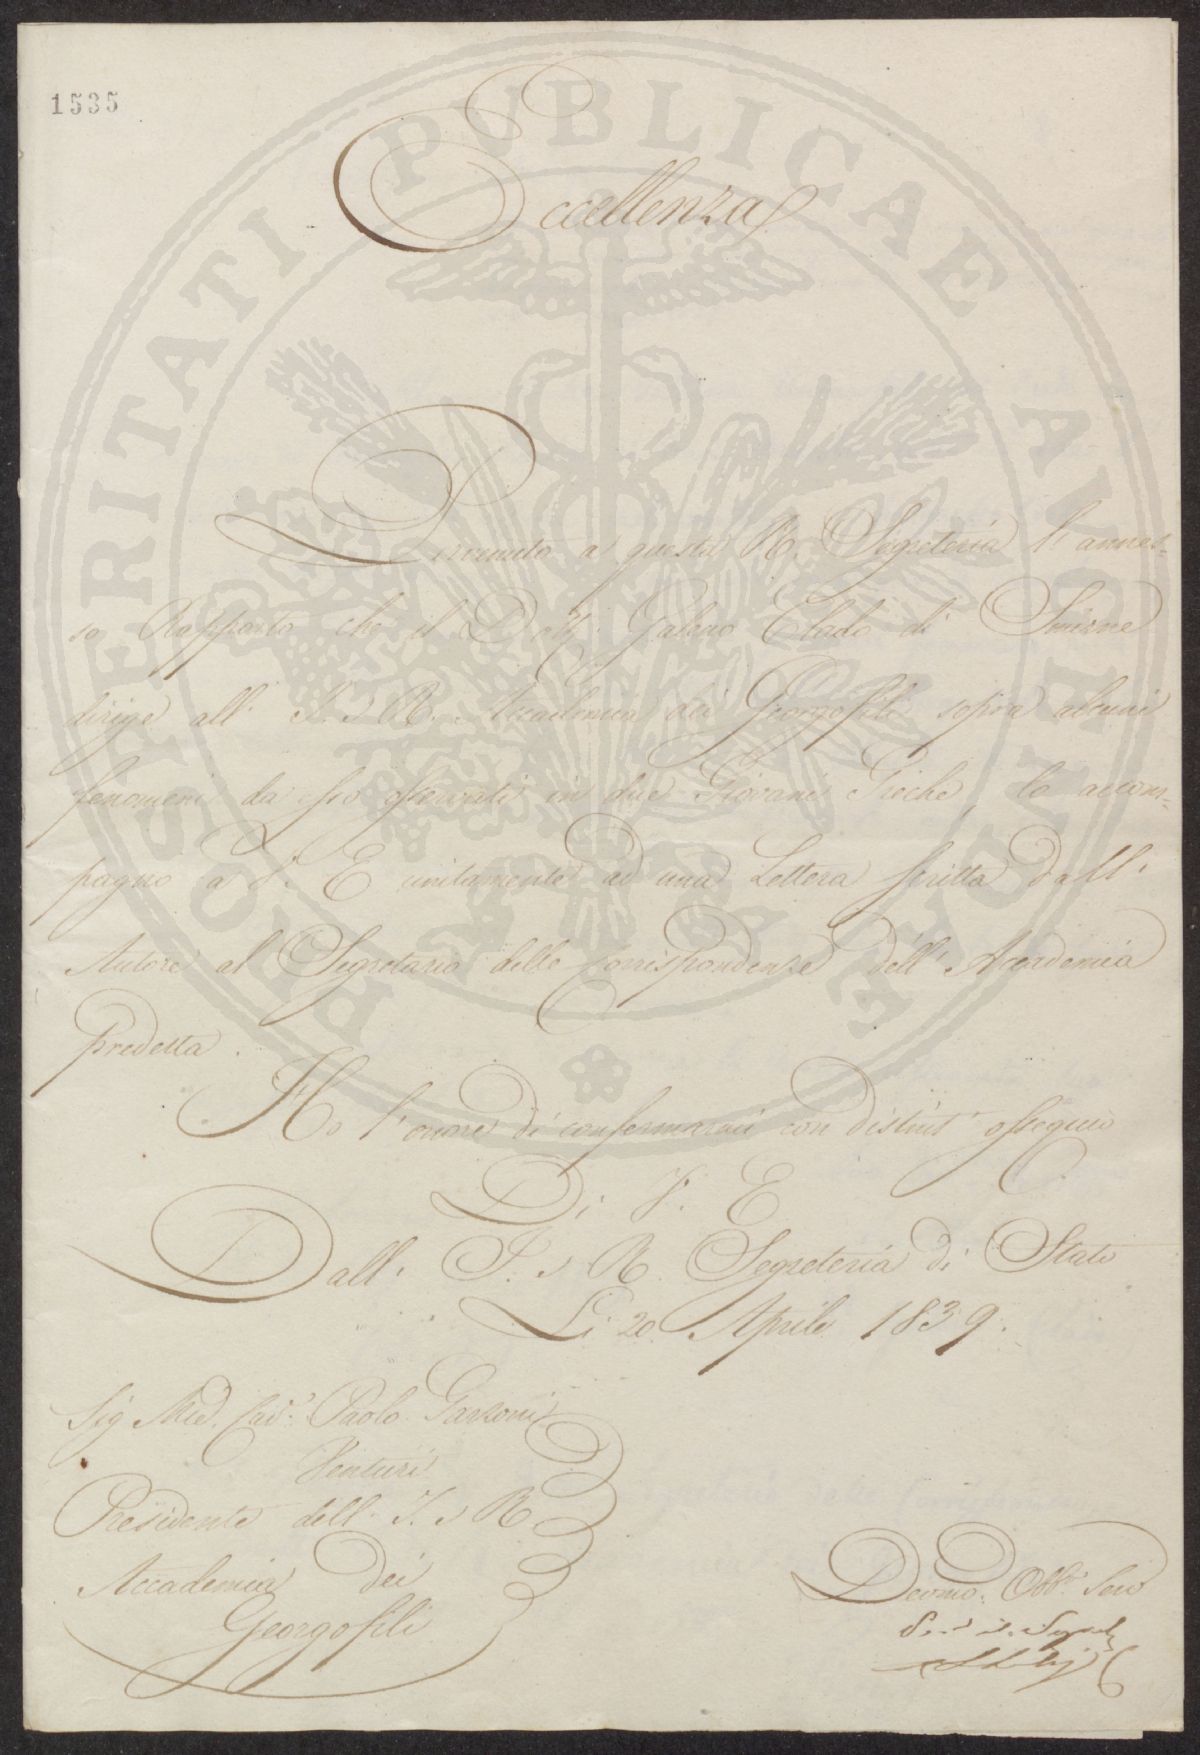 1535
PROSPERITATI PUBLICAE AUGENDAE
Eccellenza
Pervenuto a questa R. Segreteria l' annes-
so Rapporto che il Dott. Galeno Clado di Smirne
dirige all' I. e R. Accademia dei Georgofili sopra alcuni
fenomeni da esso osservati in due Giovani Greche, lo accom-
pagno a V. E. unitamente ad una Lettera scritta dall'
Autore al Segretario delle Corrispondenze dell' Accademia
predetta.
Ho l' onore di confermarmi con distint' ossequio
Di V. E.
Dall' I. e R. Segreteria di Stato
Li 20. Aprile 1839.
Sig. Cav. Paolo Garzoni
Venturi
Presidente dell' I. e R.
Accademia dei
Georgofili
Devmo. Obb. Serv